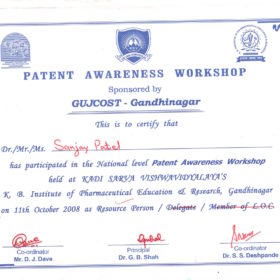 PATENT AWARENESS WORKSHOP
Sponsored by
GUJCOST - Gandhinagar
This is to certify that
Dr./Mr./Ms. Sanjay Patel
has participated in the National level Patent Awareness Workshop
held at KADI SARVA VISHWAVIDYALAYA'S
K. B. Institute of Pharmaceutical Education & Research, Gandhinagar
on 11th October 2008 as Resource Person / Delegate / Member of L.O.C.
Co-ordinator Principal Co-ordinator
Mr. D. J. Dave Dr. G. B. Shah Dr. S. S. Deshpande